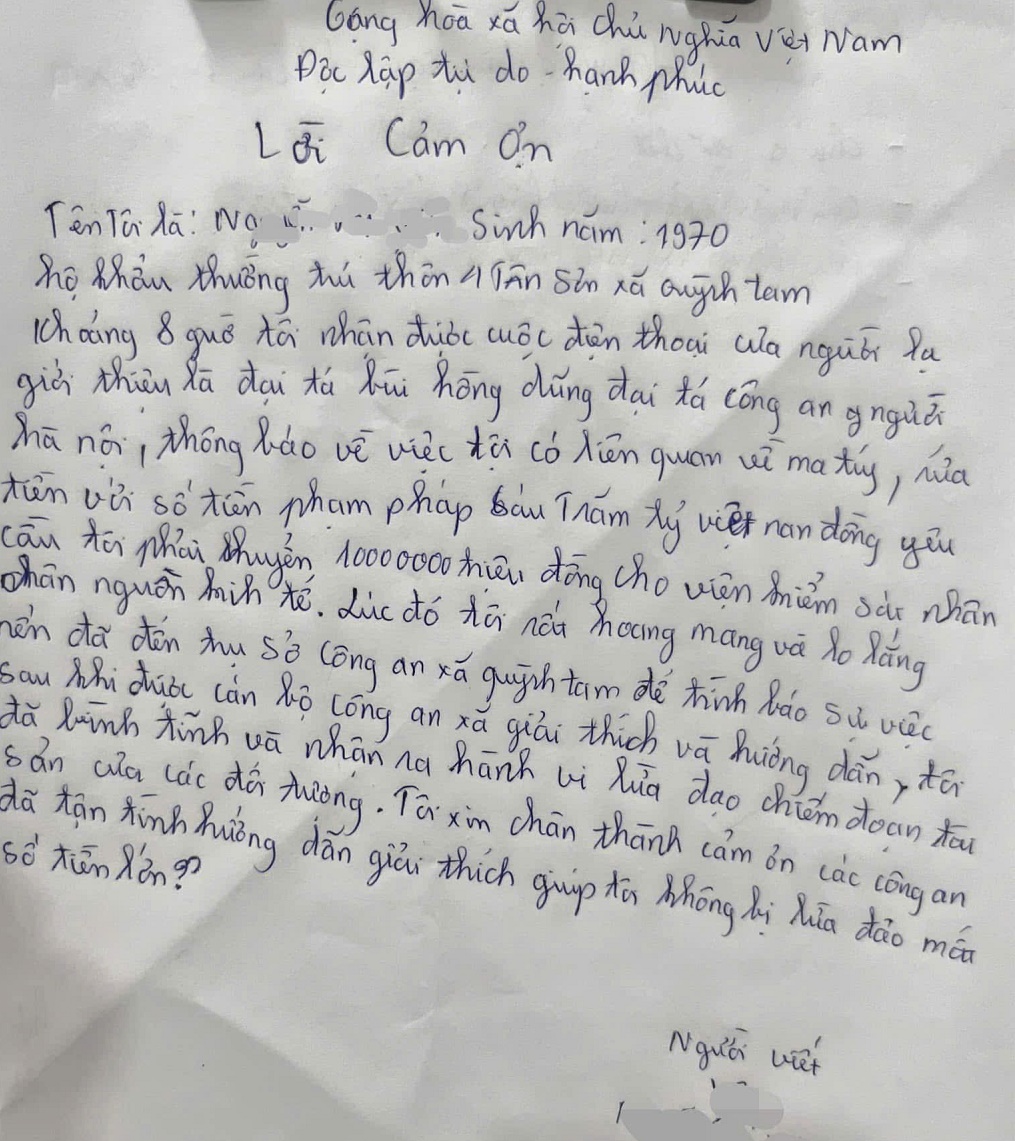 Cộng hoà xã hội chủ nghĩa Việt Nam
Độc lập tự do - hạnh phúc
Lời Cảm Ơn
Tên Tôi là: Sinh năm: 1970
hộ khẩu thường trú thôn 4 Tân Sơn xã quỳnh tam
khoảng 8 tôi nhận được cuộc điện thoại của người lạ
giới thiệu là đại tá bùi hồng dũng đại tá công an người
hà nội, thông báo về việc tôi có liên quan về ma túy, rửa
tiền với số tiền phạm pháp sáu Trăm tỷ việt nan đồng yêu
cầu tôi phải khuyển 10000000 triệu đồng cho viện kiểm sát nhân
nhân nguồn kinh tế. Lúc đó tôi rất hoang mang và lo lắng
nên đã đến trụ sở công an xã quỳnh tam để trình báo sự việc
sau khi được cán bộ công an xã giải thích và hướng dẫn, tôi
đã bình tĩnh và nhận ra hành vi lừa đạo chiếm đoạn tài
sản của các đối tượng. Tôi xin chân thành cảm ơn các công an
đã tận tình hướng dẫn giải thích giúp tôi không bị lừa đảo mất
số tiền lớn?
Người viết